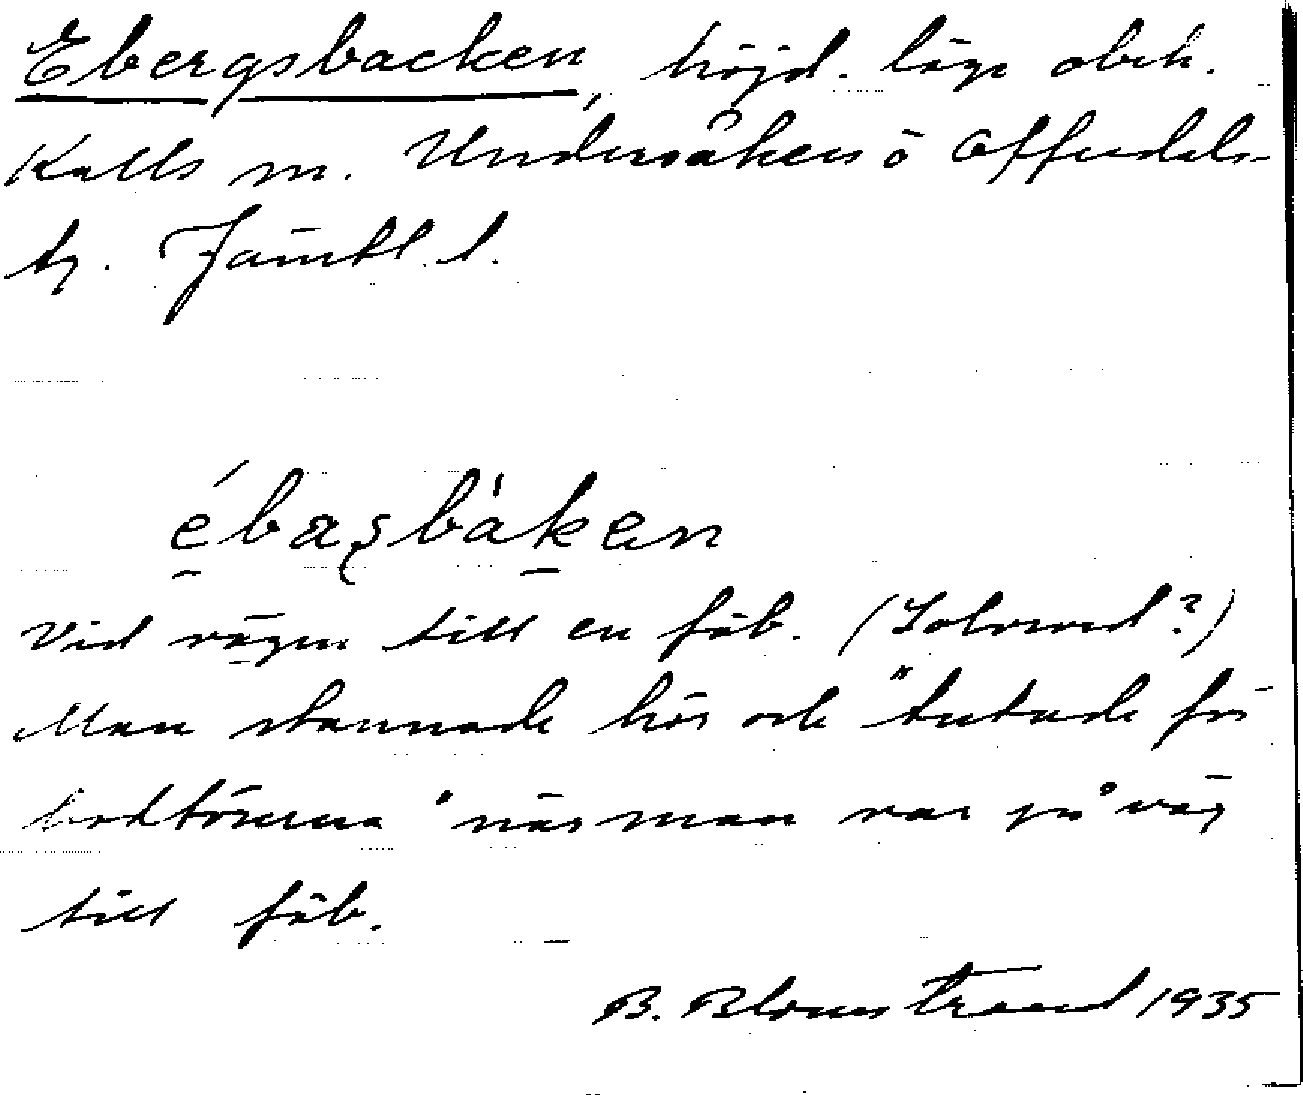 Ebergsbacken, höjd. läge obek.
Kalls sn. Undersåkers o Offerdals
tg. Jämtl. l.
ébasbàken
Vid vägen till en fäb. (Solvend?)
Man stannade här och "tutade för
bodtörerna" när man var på väg
till fäb.
B. Blomstrand 1935